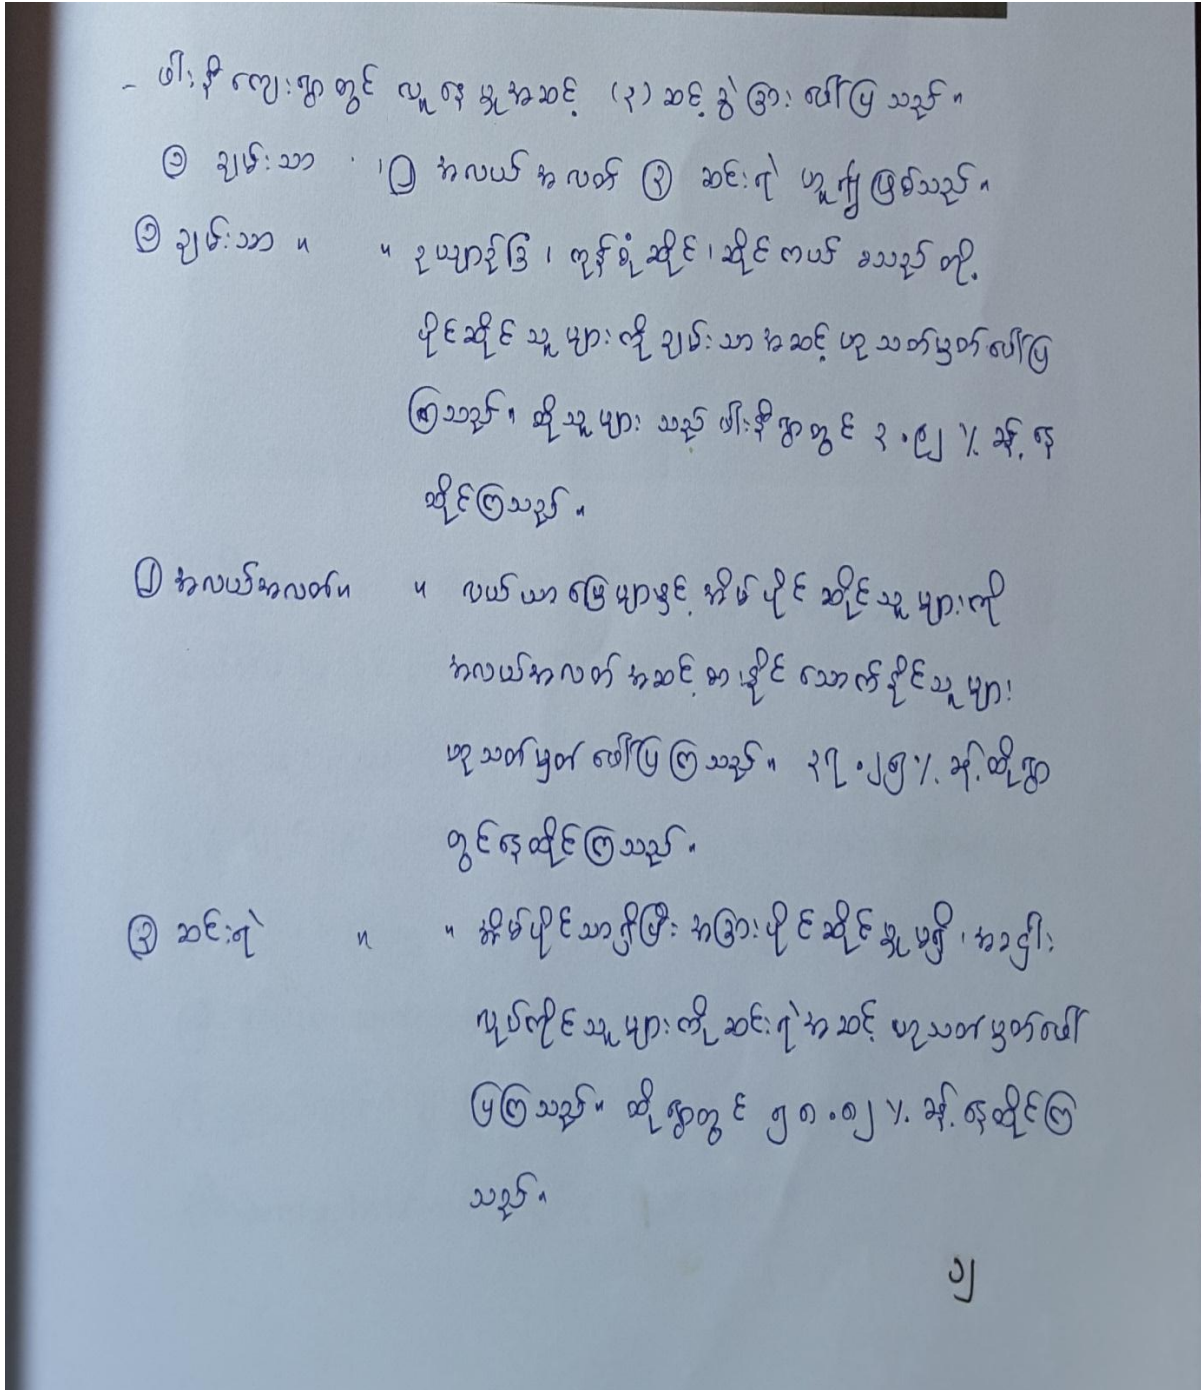 - ဖါးနီ ကျေးရွာတွင် လူနေမှုအဆင့် (၃) ဆင့်ခွဲခြား ဖေါ်ပြသည်။
① ချမ်းသာ ၊ ② အလယ်အလတ် ③ ဆင်းရဲ ဟူ၍ဖြစ်သည်။
① ချမ်းသာ ။ ။ ဥယျာဉ်ခြံ ၊ ကုန်စုံဆိုင် ၊ ဆိုင်ကယ် စသည်တို့
ပိုင်ဆိုင်သူများကို ချမ်းသာအဆင့်ဟု သတ်မှတ်ဖေါ်ပြ
ကြသည်။ ထိုသူများ သည် ဖါးနီရွာတွင် ၃.၉၂ % ခန့် နေ
ထိုင်ကြသည်။
② အလယ်အလတ်။ ။ လယ်ယာမြေများနှင့် အိမ်ပိုင်ဆိုင်သူများကို
အလယ်အလတ်အဆင့် စားနိုင်သောက်နိုင်သူများ
ဟုသတ်မှတ် ဖေါ်ပြကြသည်။ ၃၇.၂၅ % ခန့် ထိုရွာ
တွင်နေထိုင်ကြသည်။
③ ဆင်းရဲ ။ ။ အိမ်ပိုင်သာရှိပြီး အခြားပိုင်ဆိုင်မှုမရှိ ၊ အငှါး
လုပ်ကိုင်သူများကို ဆင်းရဲအဆင့် ဟုသတ်မှတ်ဖေါ်
ပြကြသည်။ ထိုရွာတွင် ၅၈.၈၂ % ခန့် နေထိုင်ကြ
သည်။
၁၂